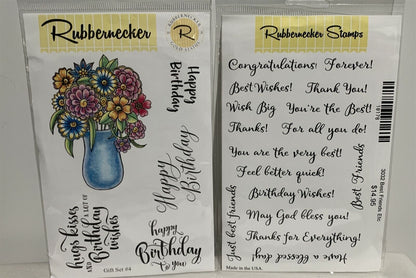 Rubbernecker
RUBBERNECKER
R
Happy
Birthday
Happy
Birthday
hugs kisses
and a lot of
Birthday
wishes
happy
Birthday
to you
Gift Set #4
Rubbernecker Stamps
Congratulations! Forever!
Best Wishes! Thank You!
Wish Big You're the Best!
Thanks! For all you do!
You are the very best!
Feel better quick!
Birthday Wishes!
May God bless you!
Thanks for Everything!
Have a blessed day!
Just best friends
Best Friends
3032 Best Friends Etc.
$14.95
Made in the USA